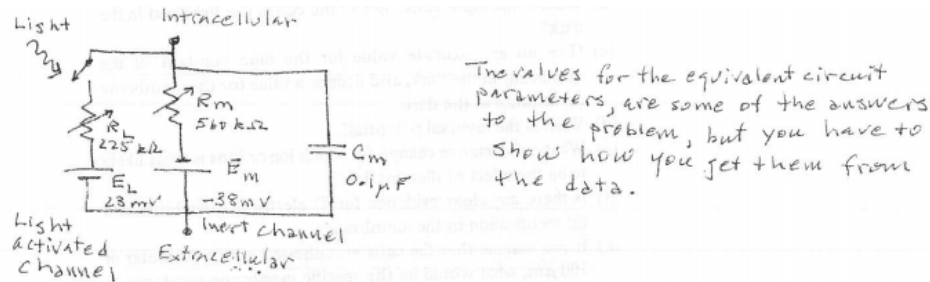 Light
Intracellular
R_L
225 kΩ
R_m
560 kΩ
C_m
0.1μF
E_L
23 mV
E_m
-38 mV
Light
activated
channel
Inert channel
Extracellular
The values for the equivalent circuit
parameters, are some of the answers
to the problem, but you have to
show how you get them from
the data.